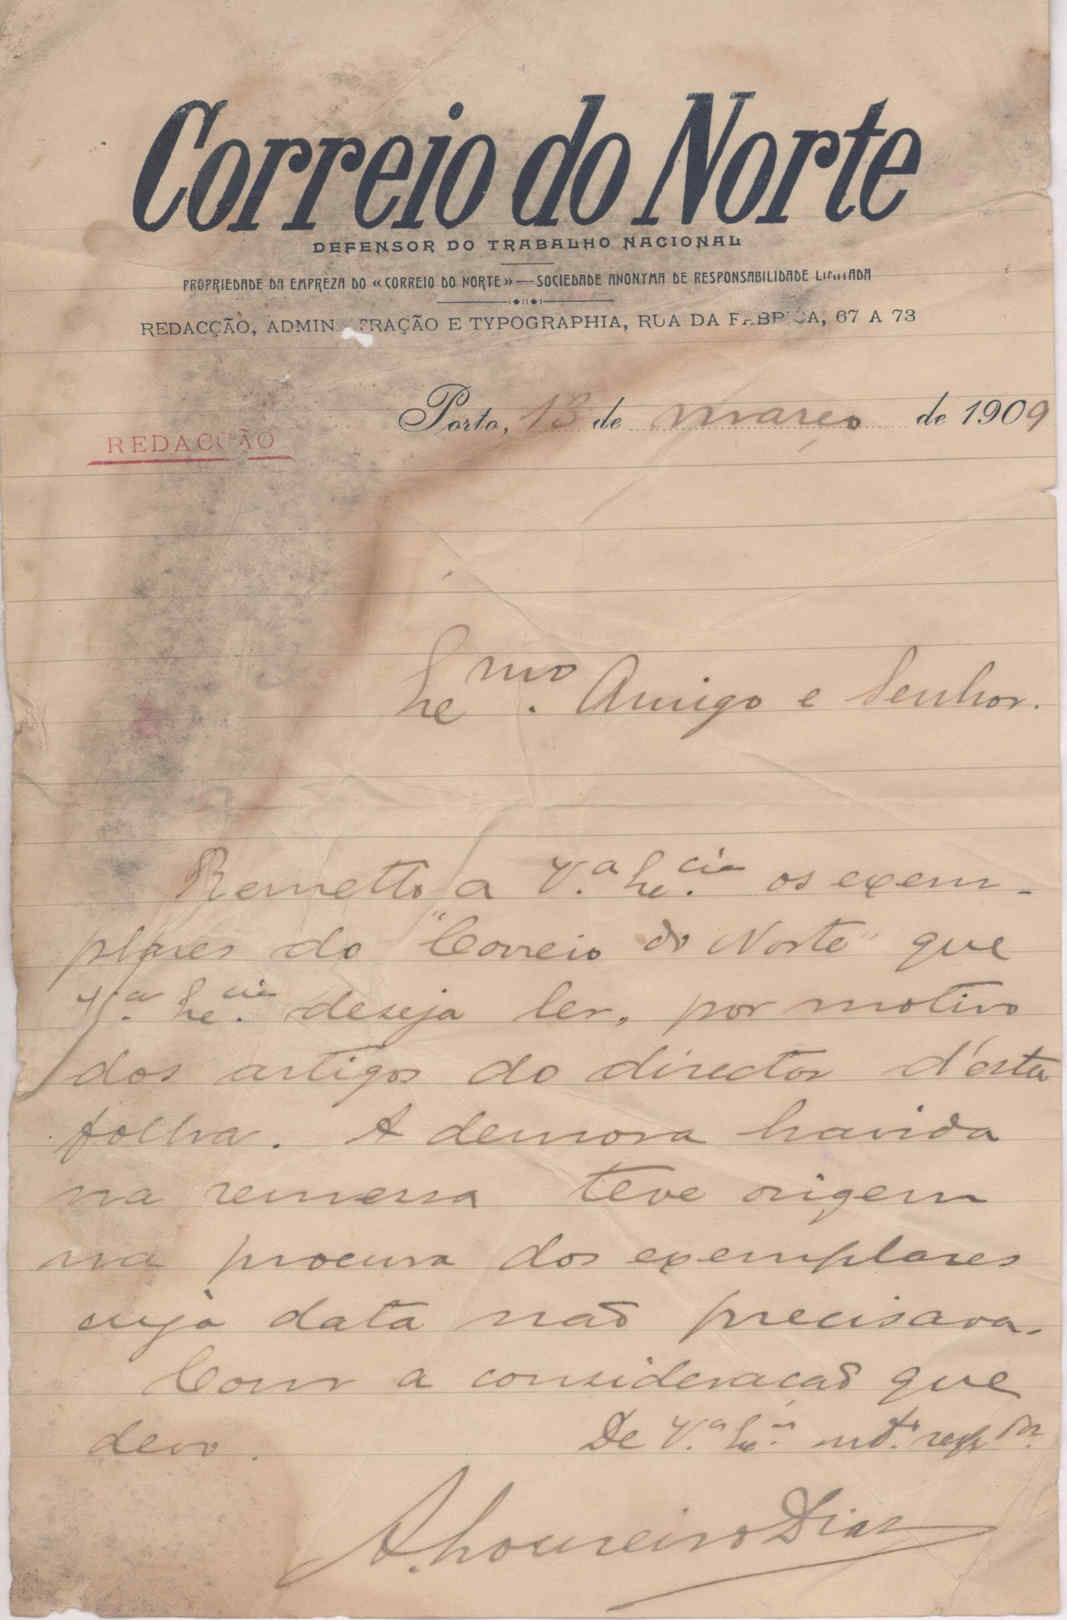 Correio do Norte
DEFENSOR DO TRABALHO NACIONAL
PROPRIEDADE DA EMPREZA DO «CORREIO DO NORTE»—SOCIEDADE ANONYMA DE RESPONSABILIDADE LIMITADA
REDACÇÃO, ADMINISTRAÇÃO E TYPOGRAPHIA, RUA DA FABRICA, 67 A 73
Porto, 13 de março de 1909
REDACÇÃO
Exmo. Amigo e Senhor.
Remetto a V.a Ex.cia os exem-
plares do "Correio do Norte" que
V.a Ex.cia deseja ler, por motivo
dos artigos do director d'esta
folha. A demora havida
na remessa teve origem
na procura dos exemplares
cuja data não precisava.
Com a consideração que
devo. De V.a Ex.a
A. Loureiro Dias